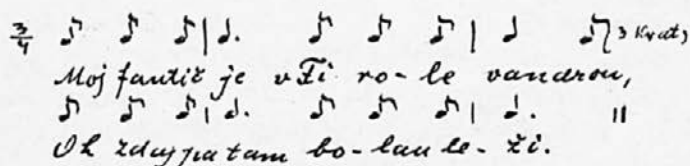 3/4 3 krat
Moj fantič je v Ti ro - le vandrou,
Oh zdaj pa tam bo - lan le - ži.